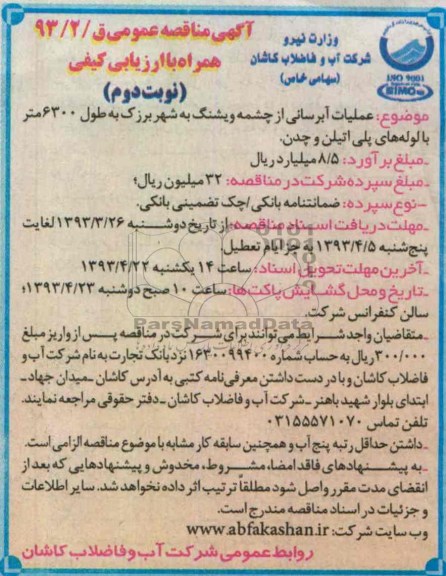 آگهی مناقصه عمومی ق/۹۳/۲
همراه با ارزیابی کیفی
(نوبت دوم)
وزارت نیرو
شرکت آب و فاضلاب کاشان
(سهامی خاص)
ISO 9001
موضوع: عملیات آبرسانی از چشمه ویشنگ به شهر برزک به طول ۶۳۰۰متر
با لوله‌های پلی اتیلن و چدن.
_مبلغ برآورد: ۸/۵ میلیارد ریال
_مبلغ سپرده شرکت در مناقصه: ۳۲ میلیون ریال؛
_نوع سپرده: ضمانتنامه بانکی /چک تضمینی بانکی.
_مهلت دریافت اسناد مناقصه: از تاریخ دوشنبه ۱۳۹۳/۳/۲۶ لغایت
پنج‌شنبه ۱۳۹۳/۴/۵ به جز ایام تعطیل
_آخرین مهلت تحویل اسناد: ساعت ۱۴ یکشنبه ۱۳۹۳/۴/۲۲
_تاریخ و محل گشایش پاکت‌ها: ساعت ۱۰ صبح دوشنبه ۱۳۹۳/۴/۲۳؛
سالن کنفرانس شرکت.
ParsNamadData
_متقاضیان واجد شرایط می‌توانند برای شرکت در مناقصه پس از واریز مبلغ
۳۰۰/۰۰۰ ریال به حساب شماره ۱۶۳۰۰۹۹۴۰۰ نزد بانک تجارت به نام شرکت آب و
فاضلاب کاشان و با در دست داشتن معرفی‌نامه کتبی به آدرس کاشان _میدان جهاد_
ابتدای بلوار شهید باهنر _شرکت آب و فاضلاب کاشان _دفتر حقوقی مراجعه نمایند.
تلفن تماس ۰۳۱۵۵۵۷۱۰۷۰
_داشتن حداقل رتبه پنج آب و همچنین سابقه کار مشابه با موضوع مناقصه الزامی است.
_به پیشنهادهای فاقد امضا، مشروط، مخدوش و پیشنهادهایی که بعد از
انقضای مدت مقرر واصل شود مطلقاً ترتیب اثر داده نخواهد شد. سایر اطلاعات
و جزئیات در اسناد مناقصه مندرج است.
وب سایت شرکت: www.abfakashan.ir
روابط عمومی شرکت آب و فاضلاب کاشان